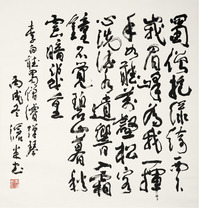 蜀僧抱綠綺西下
峨眉峰為我一揮
手如聽萬壑松客
心洗流水遺響入霜
鐘不覺碧山暮秋
雲暗幾重
李白聽蜀僧濬彈琴
丙戌冬